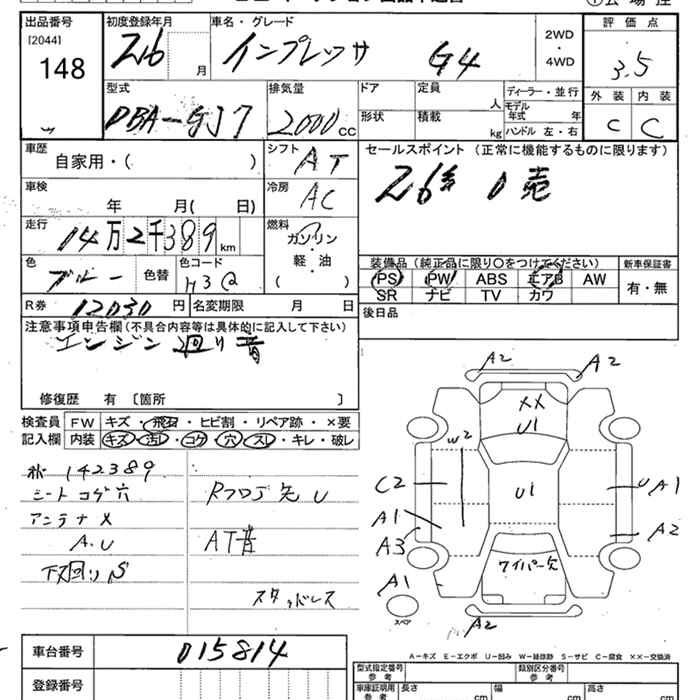 出品番号 初度登録年月 車名・グレード 2WD 評価点
[2044] 148 26 月 インプレッサ G4 ・4WD 3.5
型式 排気量 ドア 定員 人 ディーラー・並行 外装 内装
DBA-GJ7 2000 CC 形状 積載 kg モデル年式 年 ハンドル 左・右 C C
車歴 自家用・( ) シフト AT セールスポイント (正常に機能するものに限ります)
車検 年 月( 日) 冷房 AC
走行 14万2千389 km 燃料 ガソリン・軽油 ( )
色 ブルー 色替 色コード H3Q
装備品 (純正品に限り○をつけてください) 新車保証書
PS PW ABS エアB AW 有・無
SR ナビ TV カワ
R券 12030 円 名変期限 月 日 後日品
注意事項申告欄 (不具合内容等は具体的に記入して下さい)
エンジン廻り音
修復歴 有 〔箇所 〕
検査員 FW キズ・飛石・ヒビ割・リペア跡・×要
記入欄 内装 キズ・汚レ・コゲ・穴・スレ・キレ・破レ
142389
シートコゲ穴
アンテナX
A.U
下廻りS
AT音
スタッドレス
A2 A2
XX
U1
W2
C2 U1 UA1
A1 A2
A3
ワイパー欠
A1
スペア
A2
A-キズ E-エクボ U-凹み W-補修跡 S-サビ C-腐食 XX-交換済
車台番号 015814
登録番号
型式指定番号 参考 類別区分番号 参考
車庫証明用 参考 長さ cm 幅 cm 高さ cm